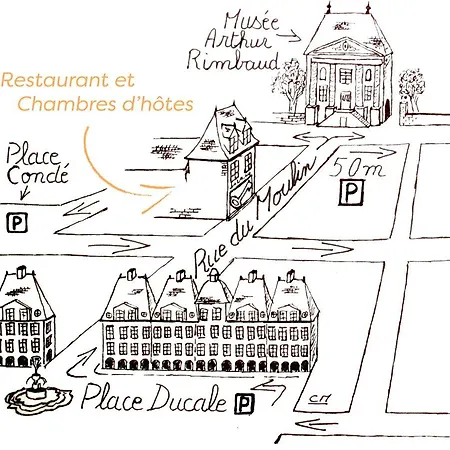 Musée
Arthur
Rimbaud
Restaurant et
Chambres d'hôtes
Place
Condé
50m
P
P
Rue du Moulin
Place Ducale P
CM